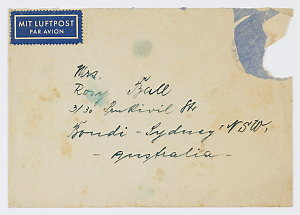 MIT LUFTPOST
PAR AVION
Mrs.
Rosy Ball
3/30 Penkivil St
Bondi - Sydney, NSW,
- Australia -